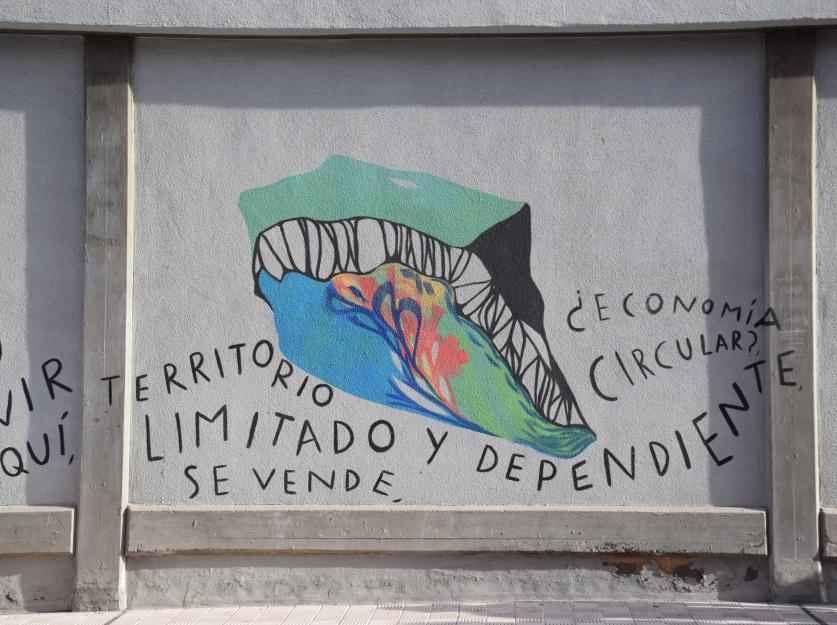 VIR
QUÍ,
TERRITORIO
LIMITADO Y DEPENDIENTE,
SE VENDE,
¿ECONOMÍA
CIRCULAR?,